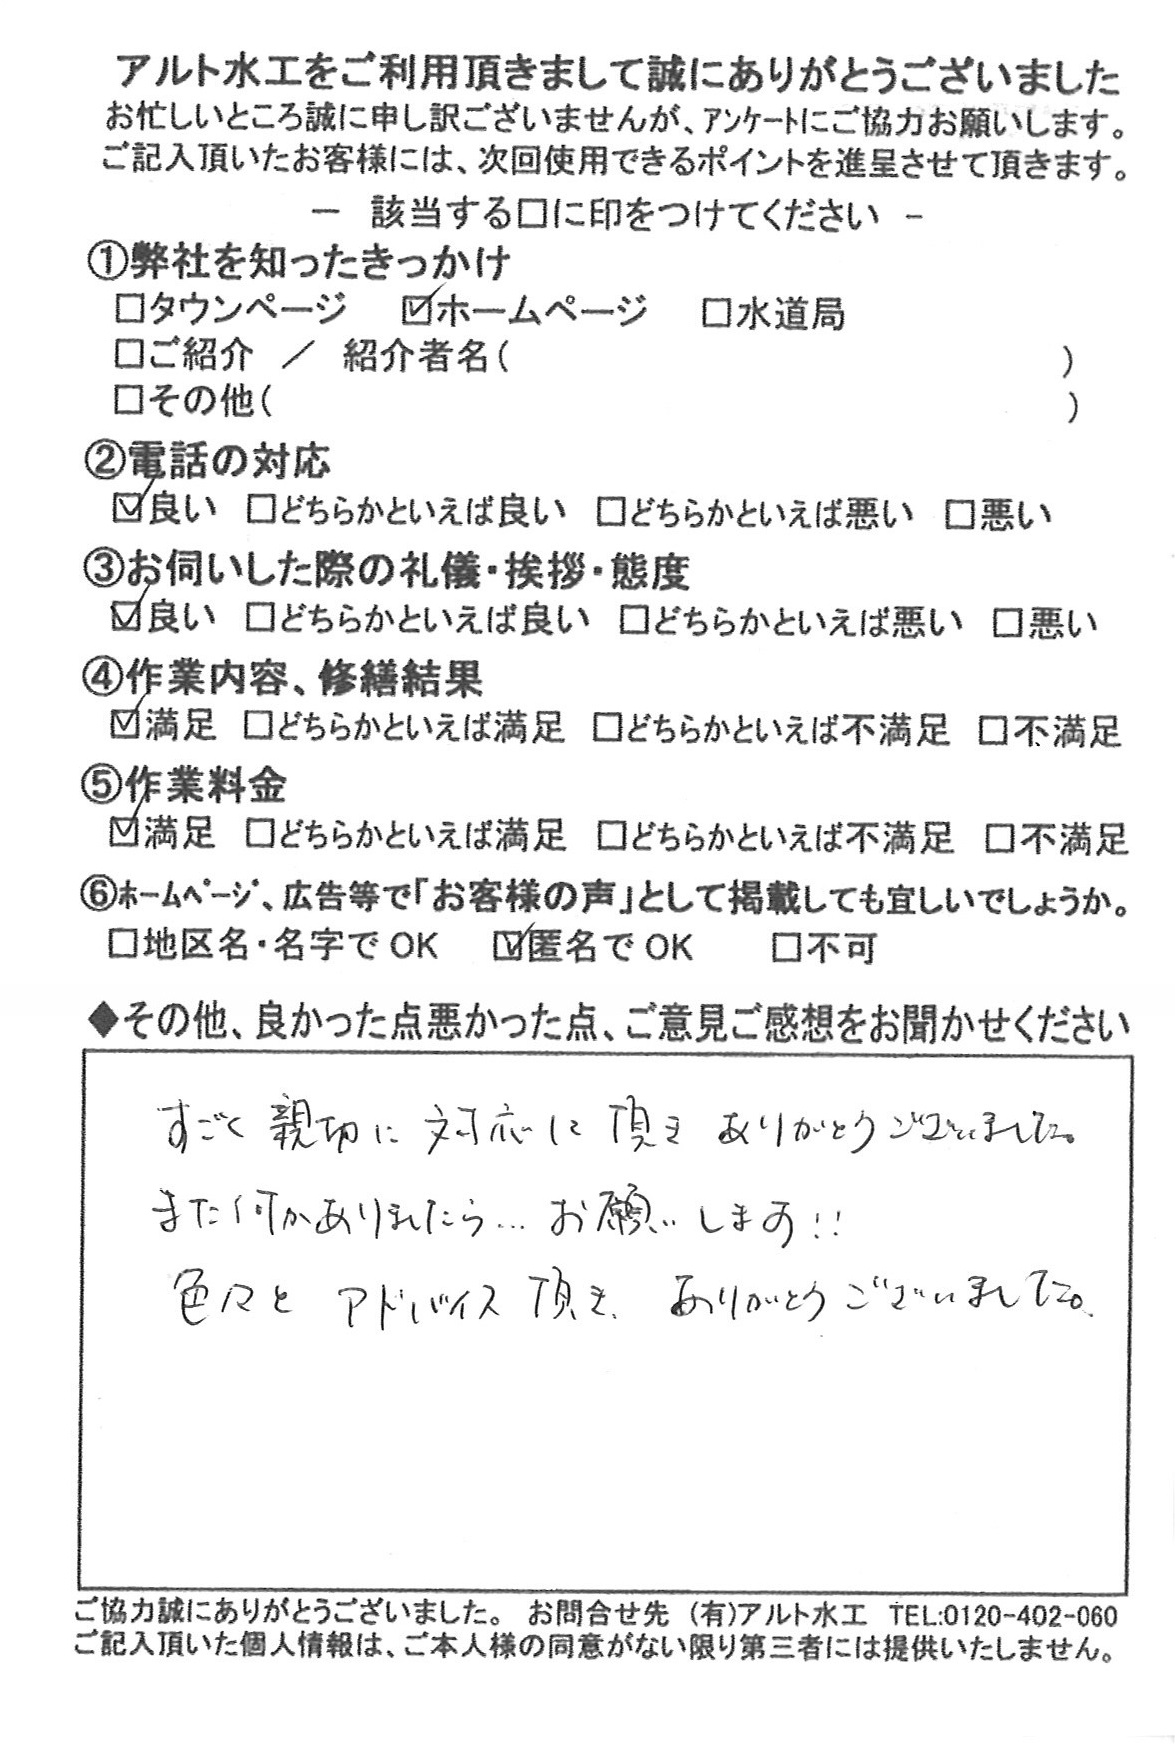 アルト水工をご利用頂きまして誠にありがとうございました
お忙しいところ誠に申し訳ございませんが、アンケートにご協力お願いします。
ご記入頂いたお客様には、次回使用できるポイントを進呈させて頂きます。
－ 該当する□に印をつけてください －
①弊社を知ったきっかけ
□タウンページ ☑ホームページ □水道局
□ご紹介 ／ 紹介者名( )
□その他( )
②電話の対応
☑良い □どちらかといえば良い □どちらかといえば悪い □悪い
③お伺いした際の礼儀・挨拶・態度
☑良い □どちらかといえば良い □どちらかといえば悪い □悪い
④作業内容、修繕結果
☑満足 □どちらかといえば満足 □どちらかといえば不満足 □不満足
⑤作業料金
☑満足 □どちらかといえば満足 □どちらかといえば不満足 □不満足
⑥ホームページ、広告等で「お客様の声」として掲載しても宜しいでしょうか。
□地区名・名字でOK ☑匿名でOK □不可
◆その他、良かった点悪かった点、ご意見ご感想をお聞かせください
すごく親切に対応して頂きありがとうございました。
また何かありましたら…お願いします!!
色々とアドバイス頂き、ありがとうございました。
ご協力誠にありがとうございました。 お問合せ先 (有)アルト水工 TEL:0120-402-060
ご記入頂いた個人情報は、ご本人様の同意がない限り第三者には提供いたしません。